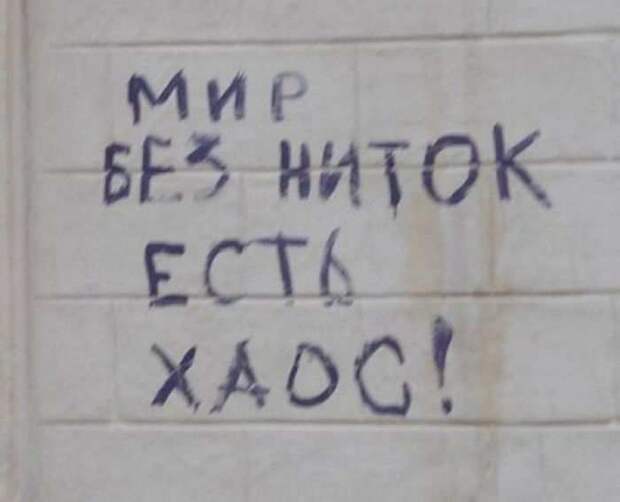 МИР
БЕЗ НИТОК
ЕСТЬ
ХАОС!